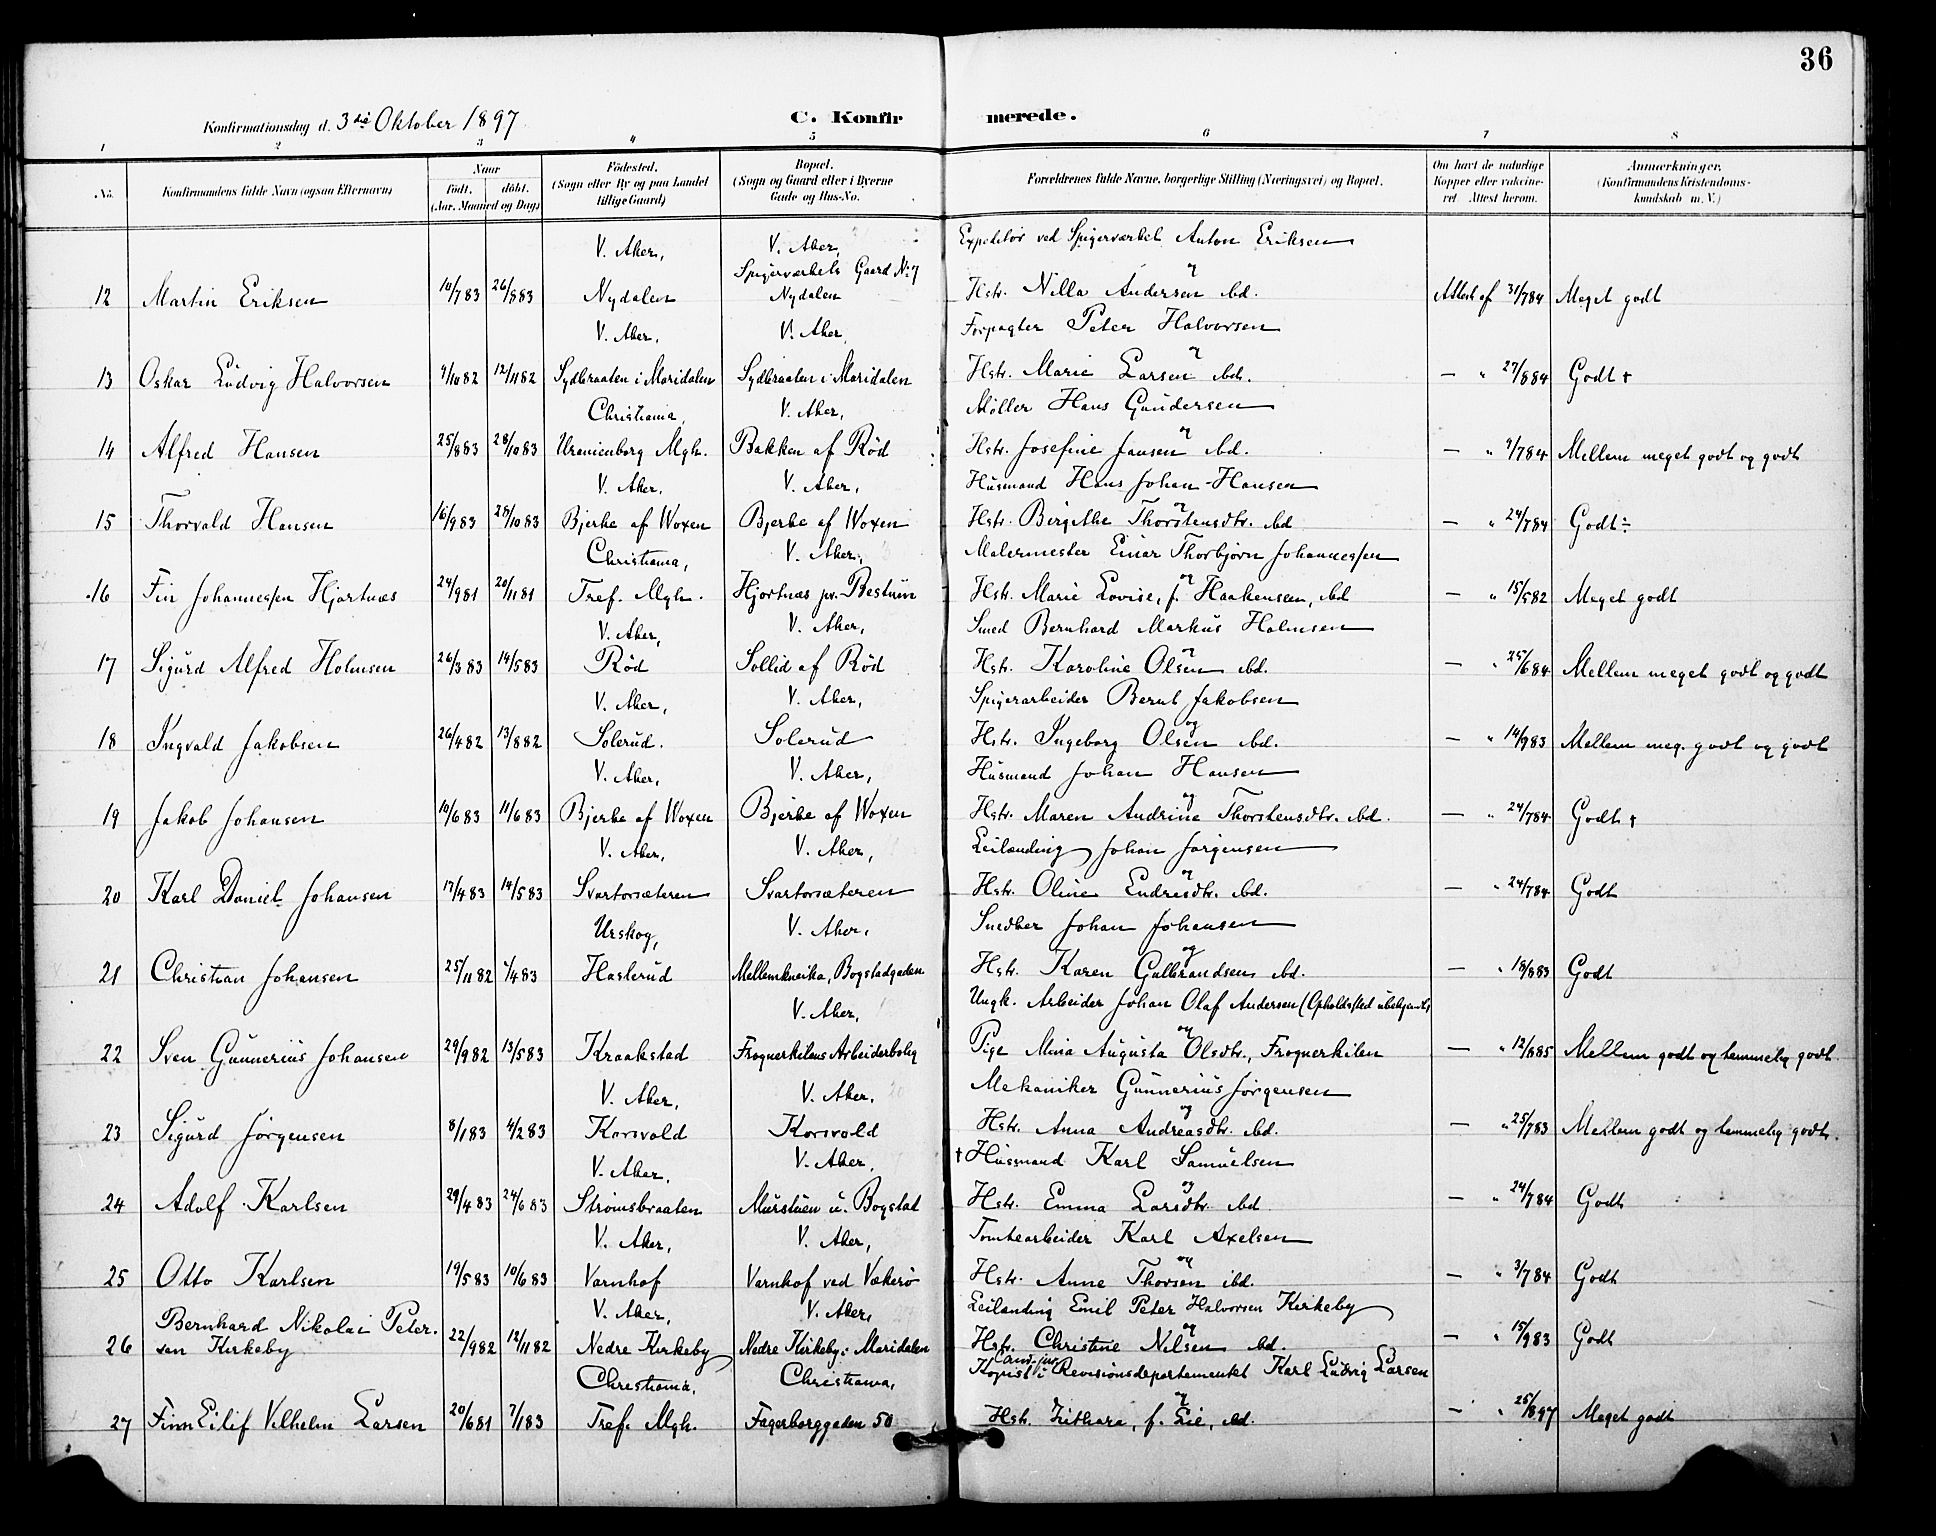 36
Konfirmationsdag d. 3die Oktober 1897
C. Konfirmerede.
1 2 3 4 5 6 7 8
No.
Konfirmandens fulde Navn (ogsaa Efternavn)
Naar født. døbt. (Aar, Maaned og Dag)
Födested. (Sogn eller By og paa Landet tillige Gaard)
Bopæl. (Sogn og Gaard eller i Byerne Gade og Hus-No.
Forældrenes fulde Navne, borgerlige Stilling (Næringsvei) og Bopæl.
Om havt de naturlige Kopper eller vakcineret Attest herom.
Anmærkninger. (Konfirmandens Kristendomskundskab m. V.)
V. Aker, V. Aker, Expeditør ved Spigerværket Anton Eriksen
Spigerværkets Gaard No 7 og
12 Martin Eriksen 10/7 83 26/8 83 Nydalen Nydalen Hstr. Nilla Andersen ibd. Attest af 31/7 84 Meget godt
V. Aker, V. Aker, Forpagter Peter Halvorsen
og
13 Oskar Ludvig Halvorsen 9/10 82 12/11 82 Sydbraaten i Maridalen Sydbraaten i Maridalen Hstr. Marie Larsen ibd. — " 27/8 84 Godt +
Christiania, V. Aker, Møller Hans Gundersen
og
14 Alfred Hansen 25/8 83 28/10 83 Uranienborg Mgh. Bakken af Röd Hstr. Josefine Jansen ibd. — " 9/7 84 Mellem meget godt og godt
V. Aker, V. Aker, Husmand Hans Johan Hansen
og
15 Thorvald Hansen 16/9 83 28/10 83 Bjerke af Woxen Bjerke af Woxen Hstr. Birgithe Thorstensdtr. ibd — " 24/7 84 Godt ÷
Christiania, V. Aker, Malermester Einar Thorbjørn Johannessen
og
16 Fin Johannessen Hjortnæs 24/9 81 20/11 81 Tref. Mgh. Hjortnæs pr. Bestum Hstr. Marie Lovise, f. Haakensen, ibd — " 15/5 82 Meget godt
V. Aker, V. Aker, Smed Bernhard Markus Holmsen
og
17 Sigurd Alfred Holmsen 26/3 83 14/5 83 Röd Sollid af Röd Hstr. Karoline Olsen ibd. — " 25/6 84 Mellem meget godt og godt
V. Aker, V. Aker, Spigerarbeider Bernt Jakobsen
og
18 Ingvald Jakobsen 26/4 82 13/8 82 Solerud. Solerud Hstr. Ingeborg Olsen ibd. — " 14/9 83 Mellem meg. godt og godt
V. Aker, V. Aker, Husmand Johan Hansen
og
19 Jakob Johansen 10/6 83 11/6 83 Bjerke af Woxen Bjerke af Woxen Hstr. Maren Andrine Thorstensdtr. ibd. — " 24/7 84 Godt +
V. Aker, V. Aker, Leilænding Johan Jørgensen
og
20 Karl Daniel Johansen 17/4 83 14/5 83 Svartorsæteren Svartorsæteren Hstr. Oline Endresdtr. ibd. — " 24/7 84 Godt
Urskog, V. Aker, Snedker Johan Johansen
og
21 Christian Johansen 25/11 82 /4 83 Haslerud Mellemkneika, Bogstadgaden Hstr. Karen Gulbrandsen ibd. — " 18/8 83 Godt
V. Aker, Ungk. Arbeider Johan Olaf Andersen (Opholdssted ubekjendt)
og
22 Sven Gunnerius Johansen 29/9 82 13/5 83 Kraakstad Frognerkilens Arbeiderbolig Pige Mina Augusta Olsdtr., Frognerkilen — " 12/8 85 Mellem godt og temmelig godt.
V. Aker, V. Aker, Mekaniker Gunnerius Jørgensen
og
23 Sigurd Jørgensen 8/1 83 4/2 83 Korsvold Korsvold Hstr. Anna Andreasdtr. ibd. — " 25/7 83 Mellem godt og temmelig godt.
V. Aker, V. Aker, + Husmand Karl Samuelsen
og
24 Adolf Karlsen 29/4 83 24/6 83 Strømsbraaten Murstuen u. Bogstad Hstr. Emma Larsdtr. ibd. — " 24/7 84 Godt
V. Aker, V. Aker, Tomtearbeider Karl Axelsen
og
25 Otto Karlsen 19/5 83 10/6 83 Varnhof Varnhof ved Vækerø Hstr. Anne Thorsen ibd. — " 3/7 84 Godt
V. Aker, V. Aker, Leilænding Emil Peter Halvorsen Kirkeby
og
26 Bernhard Nikolai Petersen Kirkeby 22/9 82 12/11 82 Nedre Kirkeby Nedre Kirkeby i Maridalen Hstr. Christine Nilsen ibd. — " 15/9 83 Godt
Christiania, Christiania, Cand. jur. Kopist i Revisionsdepartementet Karl Ludvig Larsen
og
27 Finn Eilif Vilhelm Larsen 20/6 81 7/1 83 Tref. Mgh. Fagerborggaden 50 Hstr. Zithara, f. Lie, ibd. — " 25/8 97 Meget godt